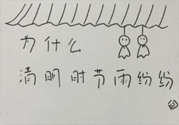 为什么
清明时节雨纷纷